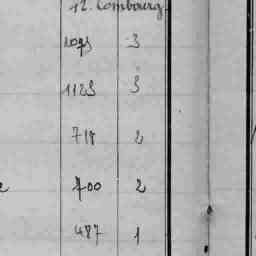 12. Combourg
1093 3
1123 3
718 2
400 2
487 1